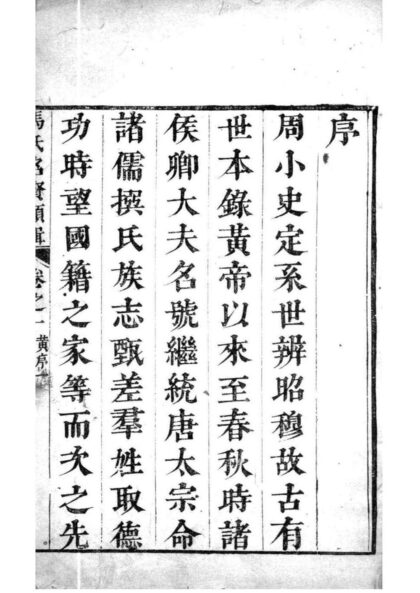 序
周小史定系世辨昭穆故古有
世本錄黃帝以來至春秋時諸
侯卿大夫名號繼統唐太宗命
諸儒撰氏族志甄差羣姓取德
功時望國籍之家等而次之先
馬氏名賢類輯 卷之一 黃序 一